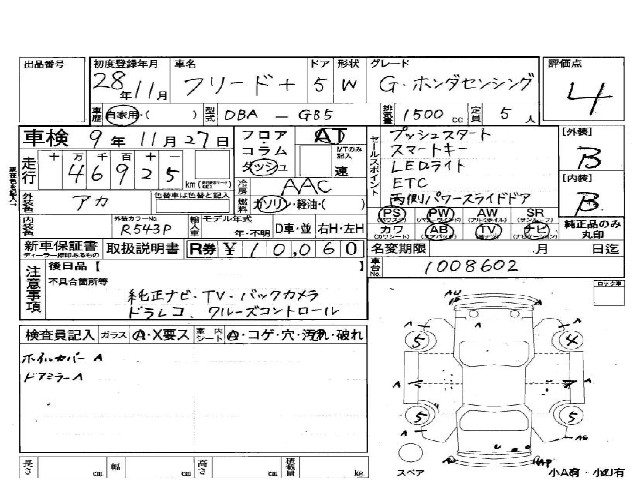 出品番号
初度登録年月 車名 ドア 形状 グレード 評価点
28年11月 フリード+ 5 W G・ホンダセンシング 4
車歴 自家用・( ) 型式 DBA-GB5 排気量 1500cc 定員 5人
車検 9年11月27日 フロア AT プッシュスタート 【外装】
走行 十万千百十一 コラム MTのみ記入 スマートキー B
46925 km ダッシュ 速 セールスポイント LEDライト
外装色 アカ 色替車は色替と記入 冷房 AAC ETC 【内装】
燃料 ガソリン・軽油・( ) 両側パワースライドドア B
PS PW AW SR
内装色 外装カラーNo. R543P 輸入車 モデル年式 年・不明 D車・並 右H・左H カワ AB TV ナビ 純正品のみ丸印
新車保証書 取扱説明書 R券 ¥10,060 名変期限 月 日迄
ディーラー捺印あるもの
車台No. 1008602
注意事項 後日品【
不具合箇所等
純正ナビ・TV・バックカメラ
ドラレコ、クルーズコントロール
検査員記入 ガラス A・X要ス 室内シート A・コゲ・穴・汚れ・破れ
ホイルカバーA
ドアミラーA
5 4
A A
5 5
長さ cm 幅 cm 高さ cm 積載量 kg
スペア 小A有・小U有